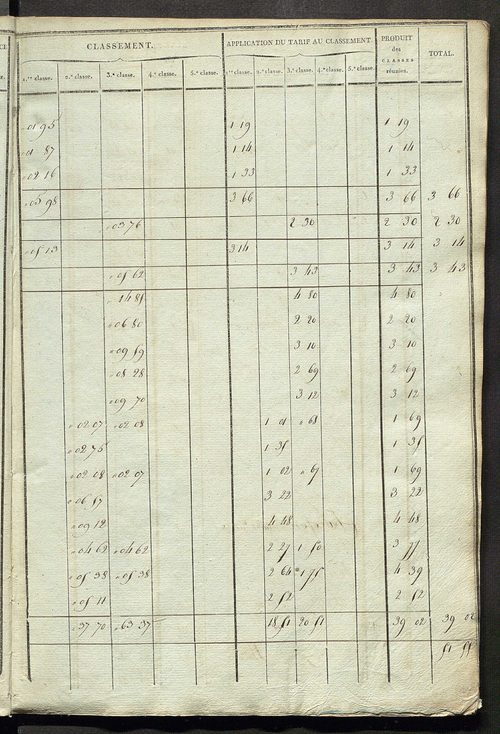 CLASSEMENT. APPLICATION DU TARIF AU CLASSEMENT. PRODUIT des CLASSES réunies. TOTAL.
1.re classe. 2.e classe. 3.e classe. 4.e classe. 5.e classe. 1.re classe. 2.e classe. 3.e classe. 4.e classe. 5.e classe.
01 95 1 19 1 19
01 87 1 14 1 14
02 16 1 33 1 33
05 98 3 66 3 66 3 66
03 76 2 30 2 30 2 30
05 13 3 14 3 14 3 14
05 62 3 43 3 43 3 43
4 80 4 80
06 80 2 20 2 20
09 59 3 10 3 10
08 28 2 69 2 69
09 70 3 12 3 12
02 07 02 08 1 01 68 1 69
02 75 1 35 1 35
02 08 02 07 1 02 67 1 69
06 57 3 22 3 22
09 12 4 48 4 48
04 62 04 62 2 27 1 50 3 77
05 38 05 38 2 64 1 75 4 39
05 11 2 52 2 52
37 70 63 37 18 51 20 51 39 02 39 02
51 55